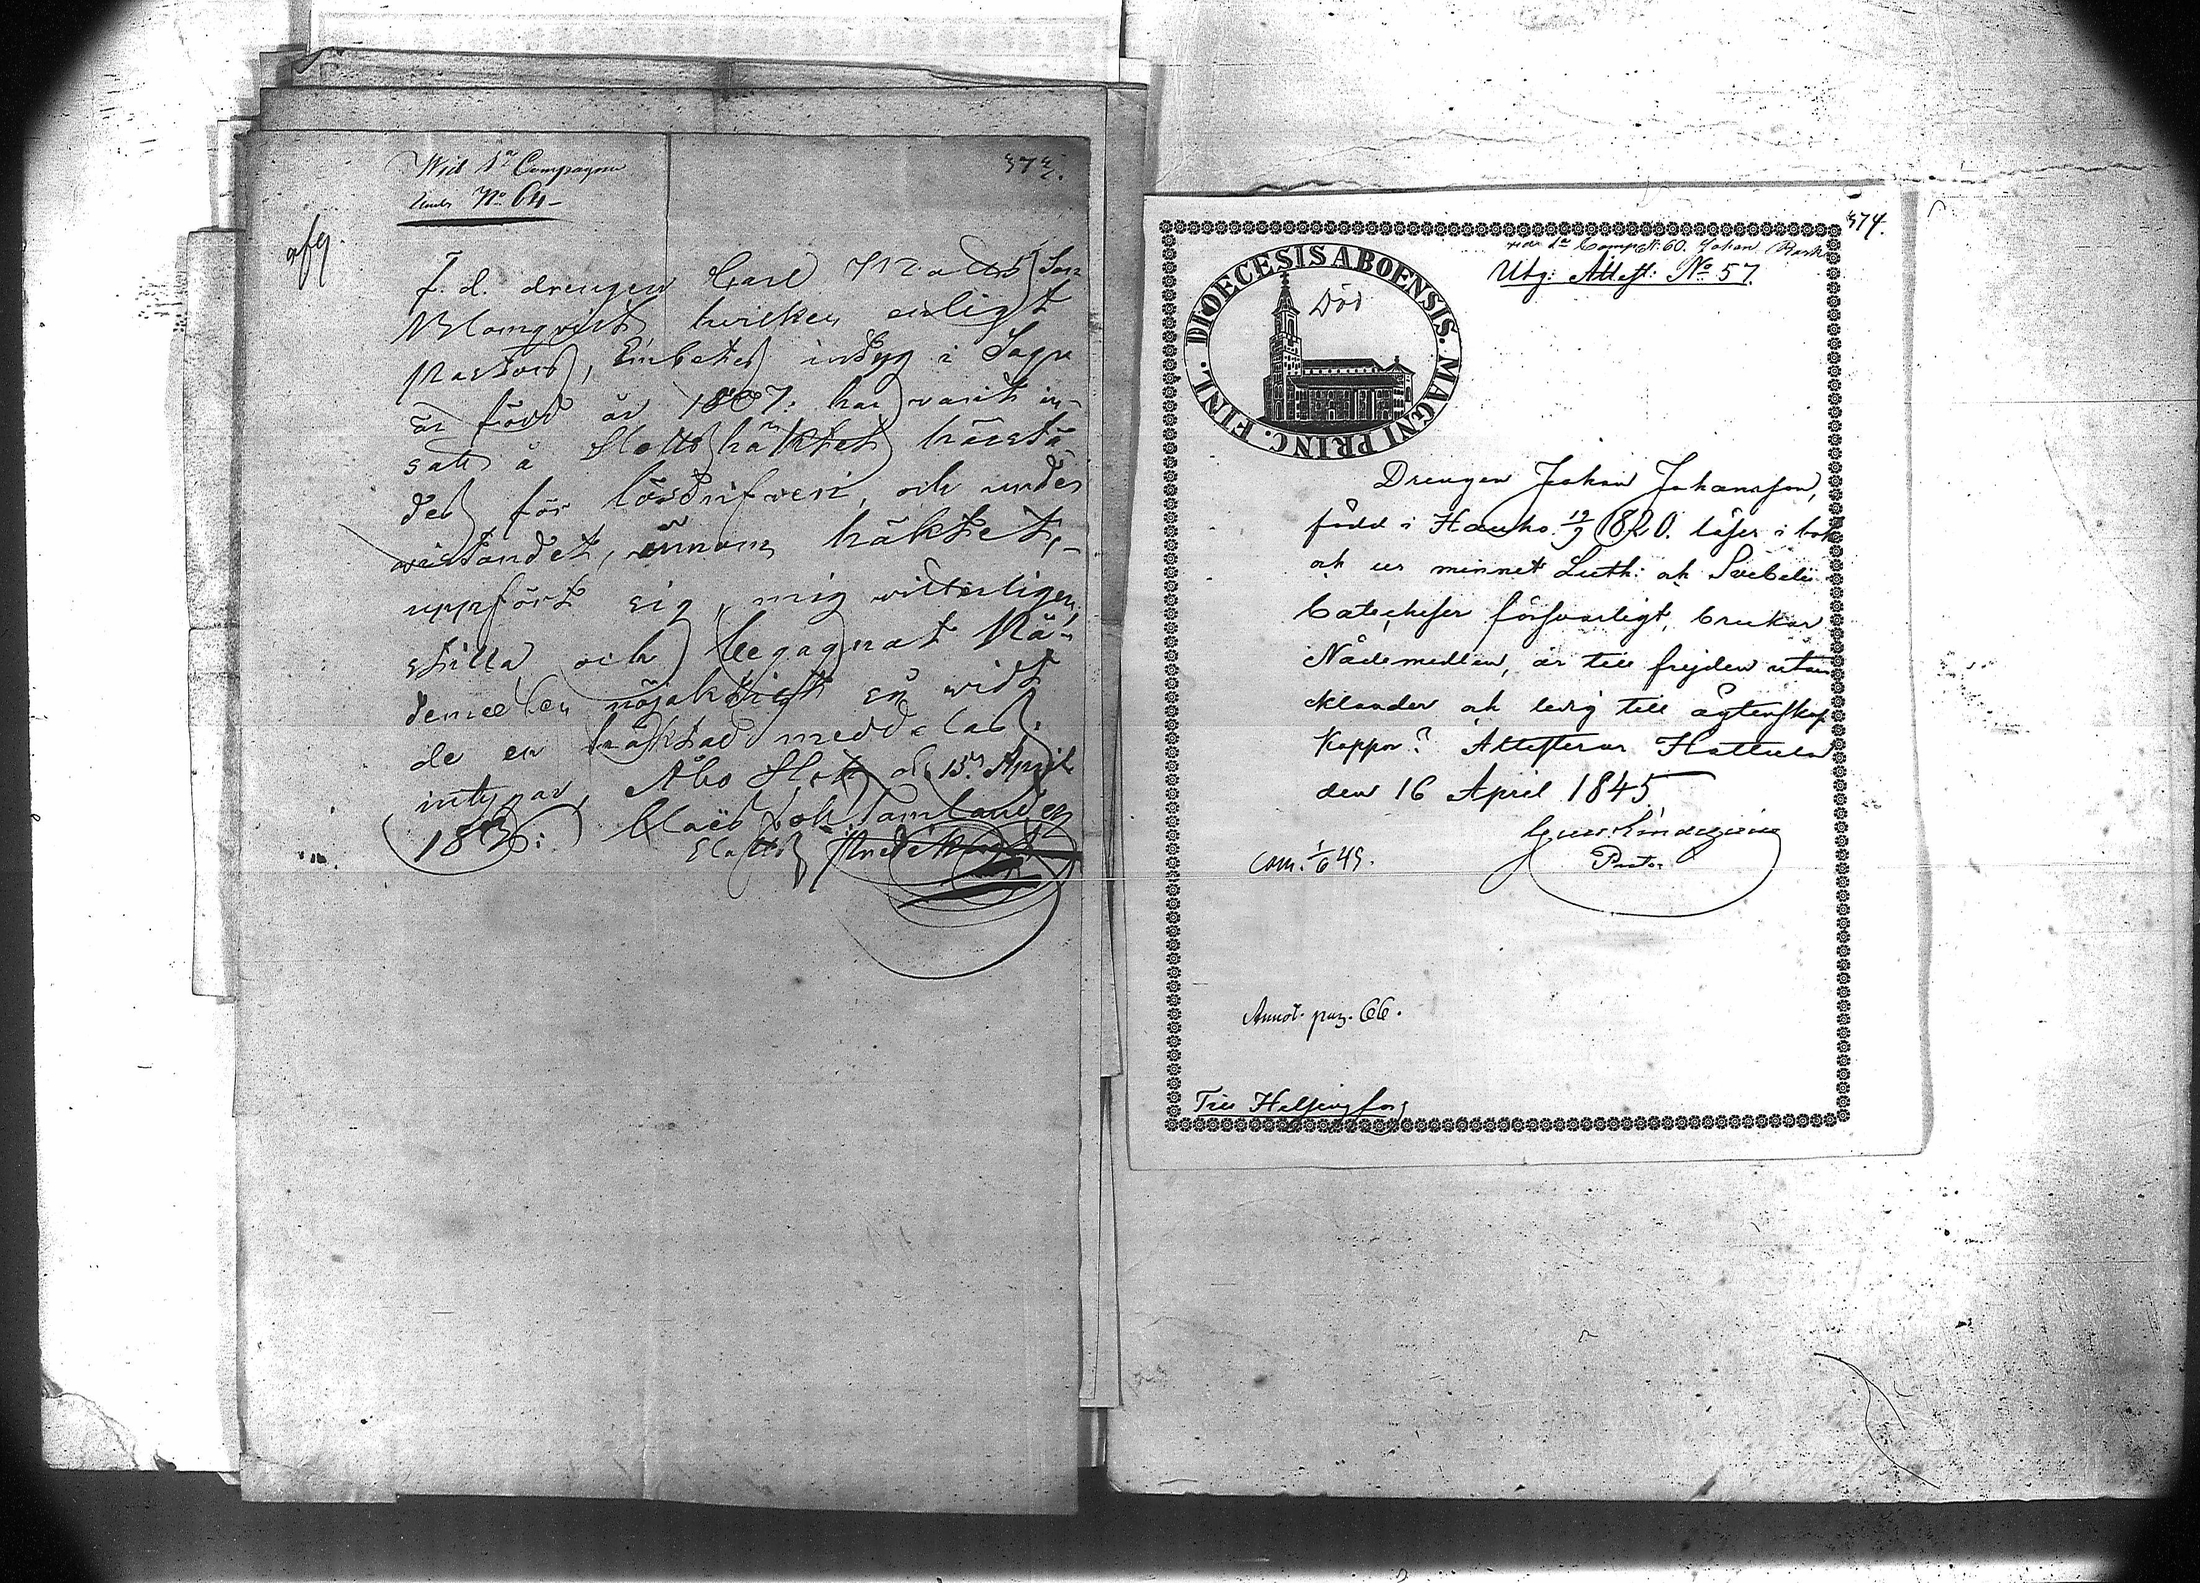 Wid 1a Compagnie
under No 64
373.
afg.
F. d. drengen Carl Matts Son
Blomqvist hvilken enligt
Pastors Embetes intyg i Sagu
är född år 1807: har varit in-
satt å Slottshäktet härstä
des för lösdrifveri, och under
vistandet, innom häktet,
uppfört sig, mig vitterligen,
stilla och begagnat Nå-
demedlen nöjaktigt
de en häktad meddelas.
intygar, Åbo Slott d. 15 April
Claës Joh. Tamlander
Slotts Predikant
374.
vid 1a Comp. N. 60. Johan Rask
Utg: Attest: No 57.
DIOECESIS ABOENSIS. MAGNI PRINC. FINL.
Död
Drengen Johan Johansson,
född i Hauho 12/7 1820. läser i bok
och ur minnet Luth: och Svebelii
Catecheser försvarligt, brukar
Nådemedlen, är till frejden utan
klander och ledig till ägtenskap
Koppor? Attesterar Hattula
den 16 April 1845
Past.
com. 1/6 45.
Annot. pag. 66.
Till Helsingfors